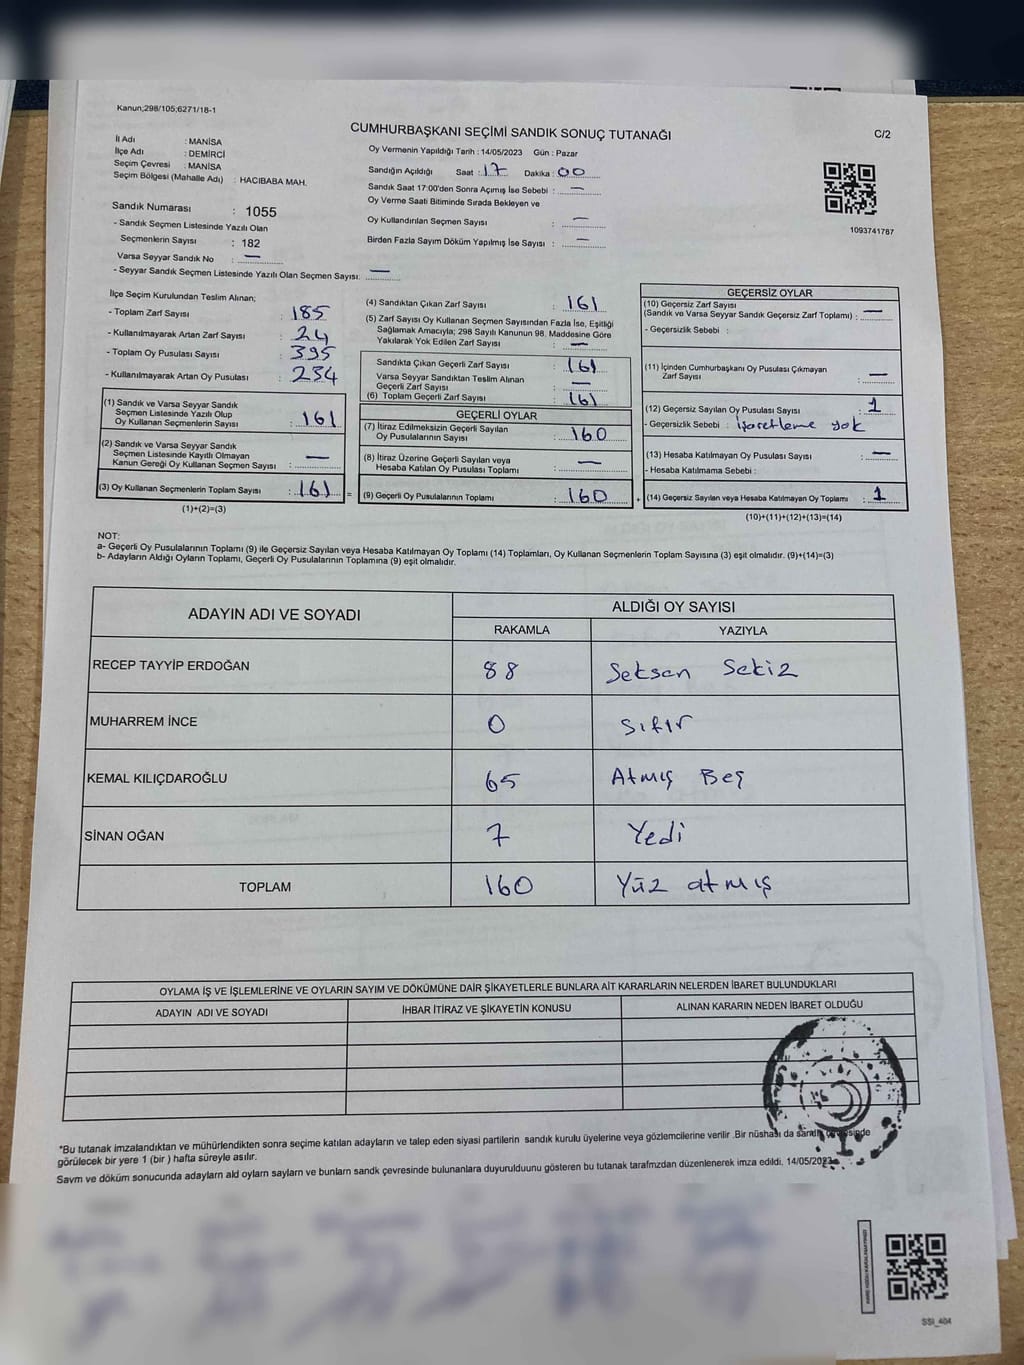 Kanun;298/105;6271/18-1
CUMHURBAŞKANI SEÇİMİ SANDIK SONUÇ TUTANAĞI
C/2
İl Adı : MANİSA
İlçe Adı : DEMİRCİ
Seçim Çevresi : MANİSA
Seçim Bölgesi (Mahalle Adı) : HACIBABA MAH.
Oy Vermenin Yapıldığı Tarih : 14/05/2023 Gün : Pazar
Sandığın Açıldığı Saat : 17 Dakika : 00
Sandık Saat 17:00'den Sonra Açımış İse Sebebi : —
Oy Verme Saati Bitiminde Sırada Bekleyen ve
Oy Kullandırılan Seçmen Sayısı : —
Birden Fazla Sayım Döküm Yapılmış İse Sayısı : —
1093741787
Sandık Numarası : 1055
- Sandık Seçmen Listesinde Yazılı Olan
Seçmenlerin Sayısı : 182
Varsa Seyyar Sandık No : —
- Seyyar Sandık Seçmen Listesinde Yazılı Olan Seçmen Sayısı: —
İlçe Seçim Kurulundan Teslim Alınan;
- Toplam Zarf Sayısı : 185
- Kullanılmayarak Artan Zarf Sayısı : 24
- Toplam Oy Pusulası Sayısı : 395
- Kullanılmayarak Artan Oy Pusulası : 234
(1) Sandık ve Varsa Seyyar Sandık
Seçmen Listesinde Yazılı Olup
Oy Kullanan Seçmenlerin Sayısı : 161
(2) Sandık ve Varsa Seyyar Sandık
Seçmen Listesinde Kayıtlı Olmayan
Kanun Gereği Oy Kullanan Seçmen Sayısı : —
(3) Oy Kullanan Seçmenlerin Toplam Sayısı : 161 =
(1)+(2)=(3)
(4) Sandıktan Çıkan Zarf Sayısı : 161
(5) Zarf Sayısı Oy Kullanan Seçmen Sayısından Fazla İse, Eşitliği
Sağlamak Amacıyla; 298 Sayılı Kanunun 98. Maddesine Göre
Yakılarak Yok Edilen Zarf Sayısı : —
Sandıkta Çıkan Geçerli Zarf Sayısı : 161
Varsa Seyyar Sandıktan Teslim Alınan
Geçerli Zarf Sayısı : —
(6) Toplam Geçerli Zarf Sayısı : 161
GEÇERLİ OYLAR
(7) İtiraz Edilmeksizin Geçerli Sayılan
Oy Pusulalarının Sayısı : 160
(8) İtiraz Üzerine Geçerli Sayılan veya
Hesaba Katılan Oy Pusulası Toplamı : —
(9) Geçerli Oy Pusulalarının Toplamı : 160 +
GEÇERSİZ OYLAR
(10) Geçersiz Zarf Sayısı
(Sandık ve Varsa Seyyar Sandık Geçersiz Zarf Toplamı) : —
- Geçersizlik Sebebi :
(11) İçinden Cumhurbaşkanı Oy Pusulası Çıkmayan
Zarf Sayısı : —
(12) Geçersiz Sayılan Oy Pusulası Sayısı : 1
- Geçersizlik Sebebi : işaretleme yok
(13) Hesaba Katılmayan Oy Pusulası Sayısı : —
- Hesaba Katılmama Sebebi :
(14) Geçersiz Sayılan veya Hesaba Katılmayan Oy Toplamı : 1
(10)+(11)+(12)+(13)=(14)
NOT:
a- Geçerli Oy Pusulalarının Toplamı (9) ile Geçersiz Sayılan veya Hesaba Katılmayan Oy Toplamı (14) Toplamları, Oy Kullanan Seçmenlerin Toplam Sayısına (3) eşit olmalıdır. (9)+(14)=(3)
b- Adayların Aldığı Oyların Toplamı, Geçerli Oy Pusulalarının Toplamına (9) eşit olmalıdır.
ADAYIN ADI VE SOYADI ALDIĞI OY SAYISI
RAKAMLA YAZIYLA
RECEP TAYYİP ERDOĞAN 88 Seksen Sekiz
MUHARREM İNCE 0 Sıfır
KEMAL KILIÇDAROĞLU 65 Atmış Beş
SİNAN OĞAN 7 Yedi
TOPLAM 160 Yüz atmış
OYLAMA İŞ VE İŞLEMLERİNE VE OYLARIN SAYIM VE DÖKÜMÜNE DAİR ŞİKAYETLERLE BUNLARA AİT KARARLARIN NELERDEN İBARET BULUNDUKLARI
ADAYIN ADI VE SOYADI İHBAR İTİRAZ VE ŞİKAYETİN KONUSU ALINAN KARARIN NEDEN İBARET OLDUĞU
*Bu tutanak imzalandıktan ve mühürlendikten sonra seçime katılan adayların ve talep eden siyasi partilerin sandık kurulu üyelerine veya gözlemcilerine verilir .Bir nüshası da sandık çevresinde
görülecek bir yere 1 (bir ) hafta süreyle asılır.
Sayım ve döküm sonucunda adayların ald oyların sayların ve bunların sandk çevresinde bulunanlara duyurulduunu gösteren bu tutanak tarafmzdan düzenlenerek imza edildi. 14/05/2023
SSI_404